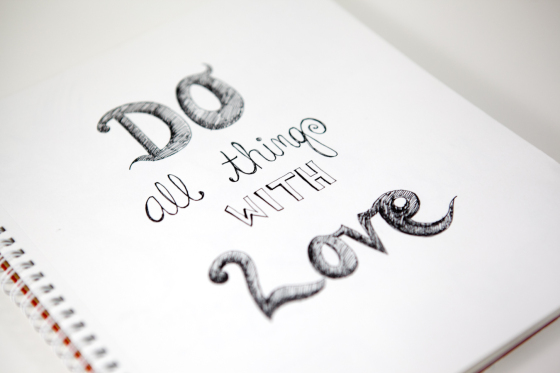 DO
all things
WITH
Love